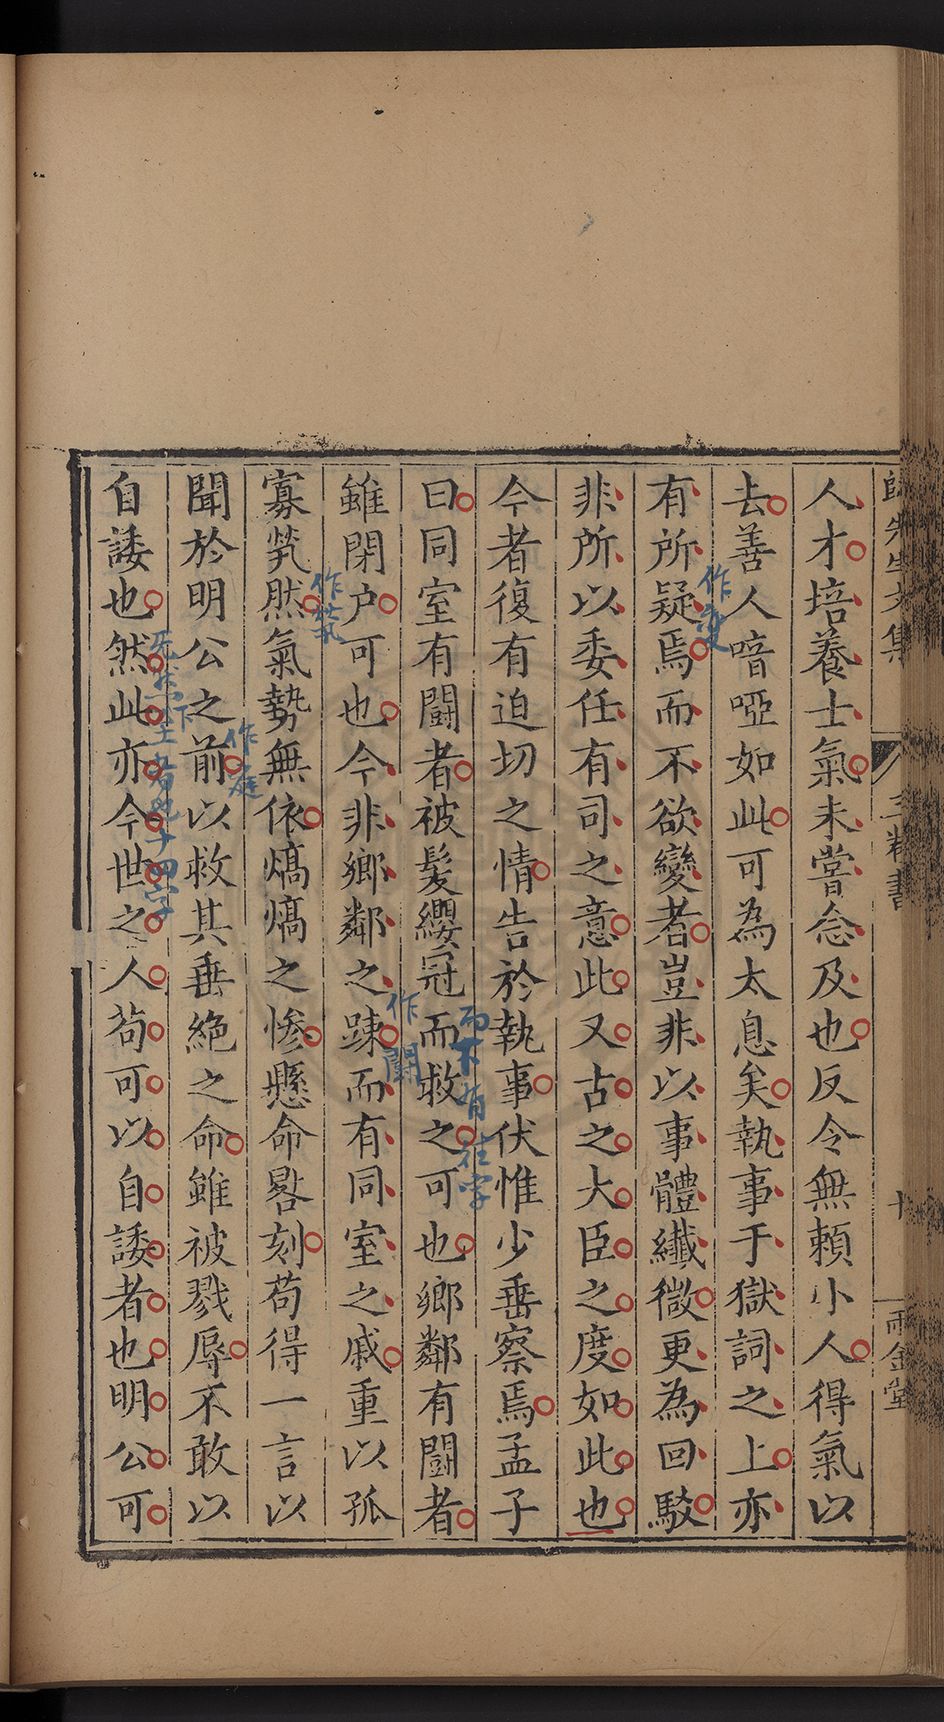 歸先生文集
三卷書
十
雨金堂
人才培養士氣未嘗念及也反令無頼小人得氣以
去善人喑啞如此可為太息矣執事于獄詞之上亦
有所疑焉而不欲變者豈非以事體纖微更為回駁
非所以委任有司之意此又古之大臣之度如此也
今者復有迫切之情告於執事伏惟少垂察焉孟子
曰同室有闘者被髪纓冠而救之可也鄉鄰有闘者
雖閉户可也今非鄉鄰之踈而有同室之戚重以孤
寡煢然氣勢無依熇熇之惨懸命晷刻苟得一言以
聞於明公之前以救其垂絕之命雖被戮辱不敢以
自諉也然此亦今世之人苟可以自諉者也明公可
作變
而下有往字
作闘
作煢
作庭